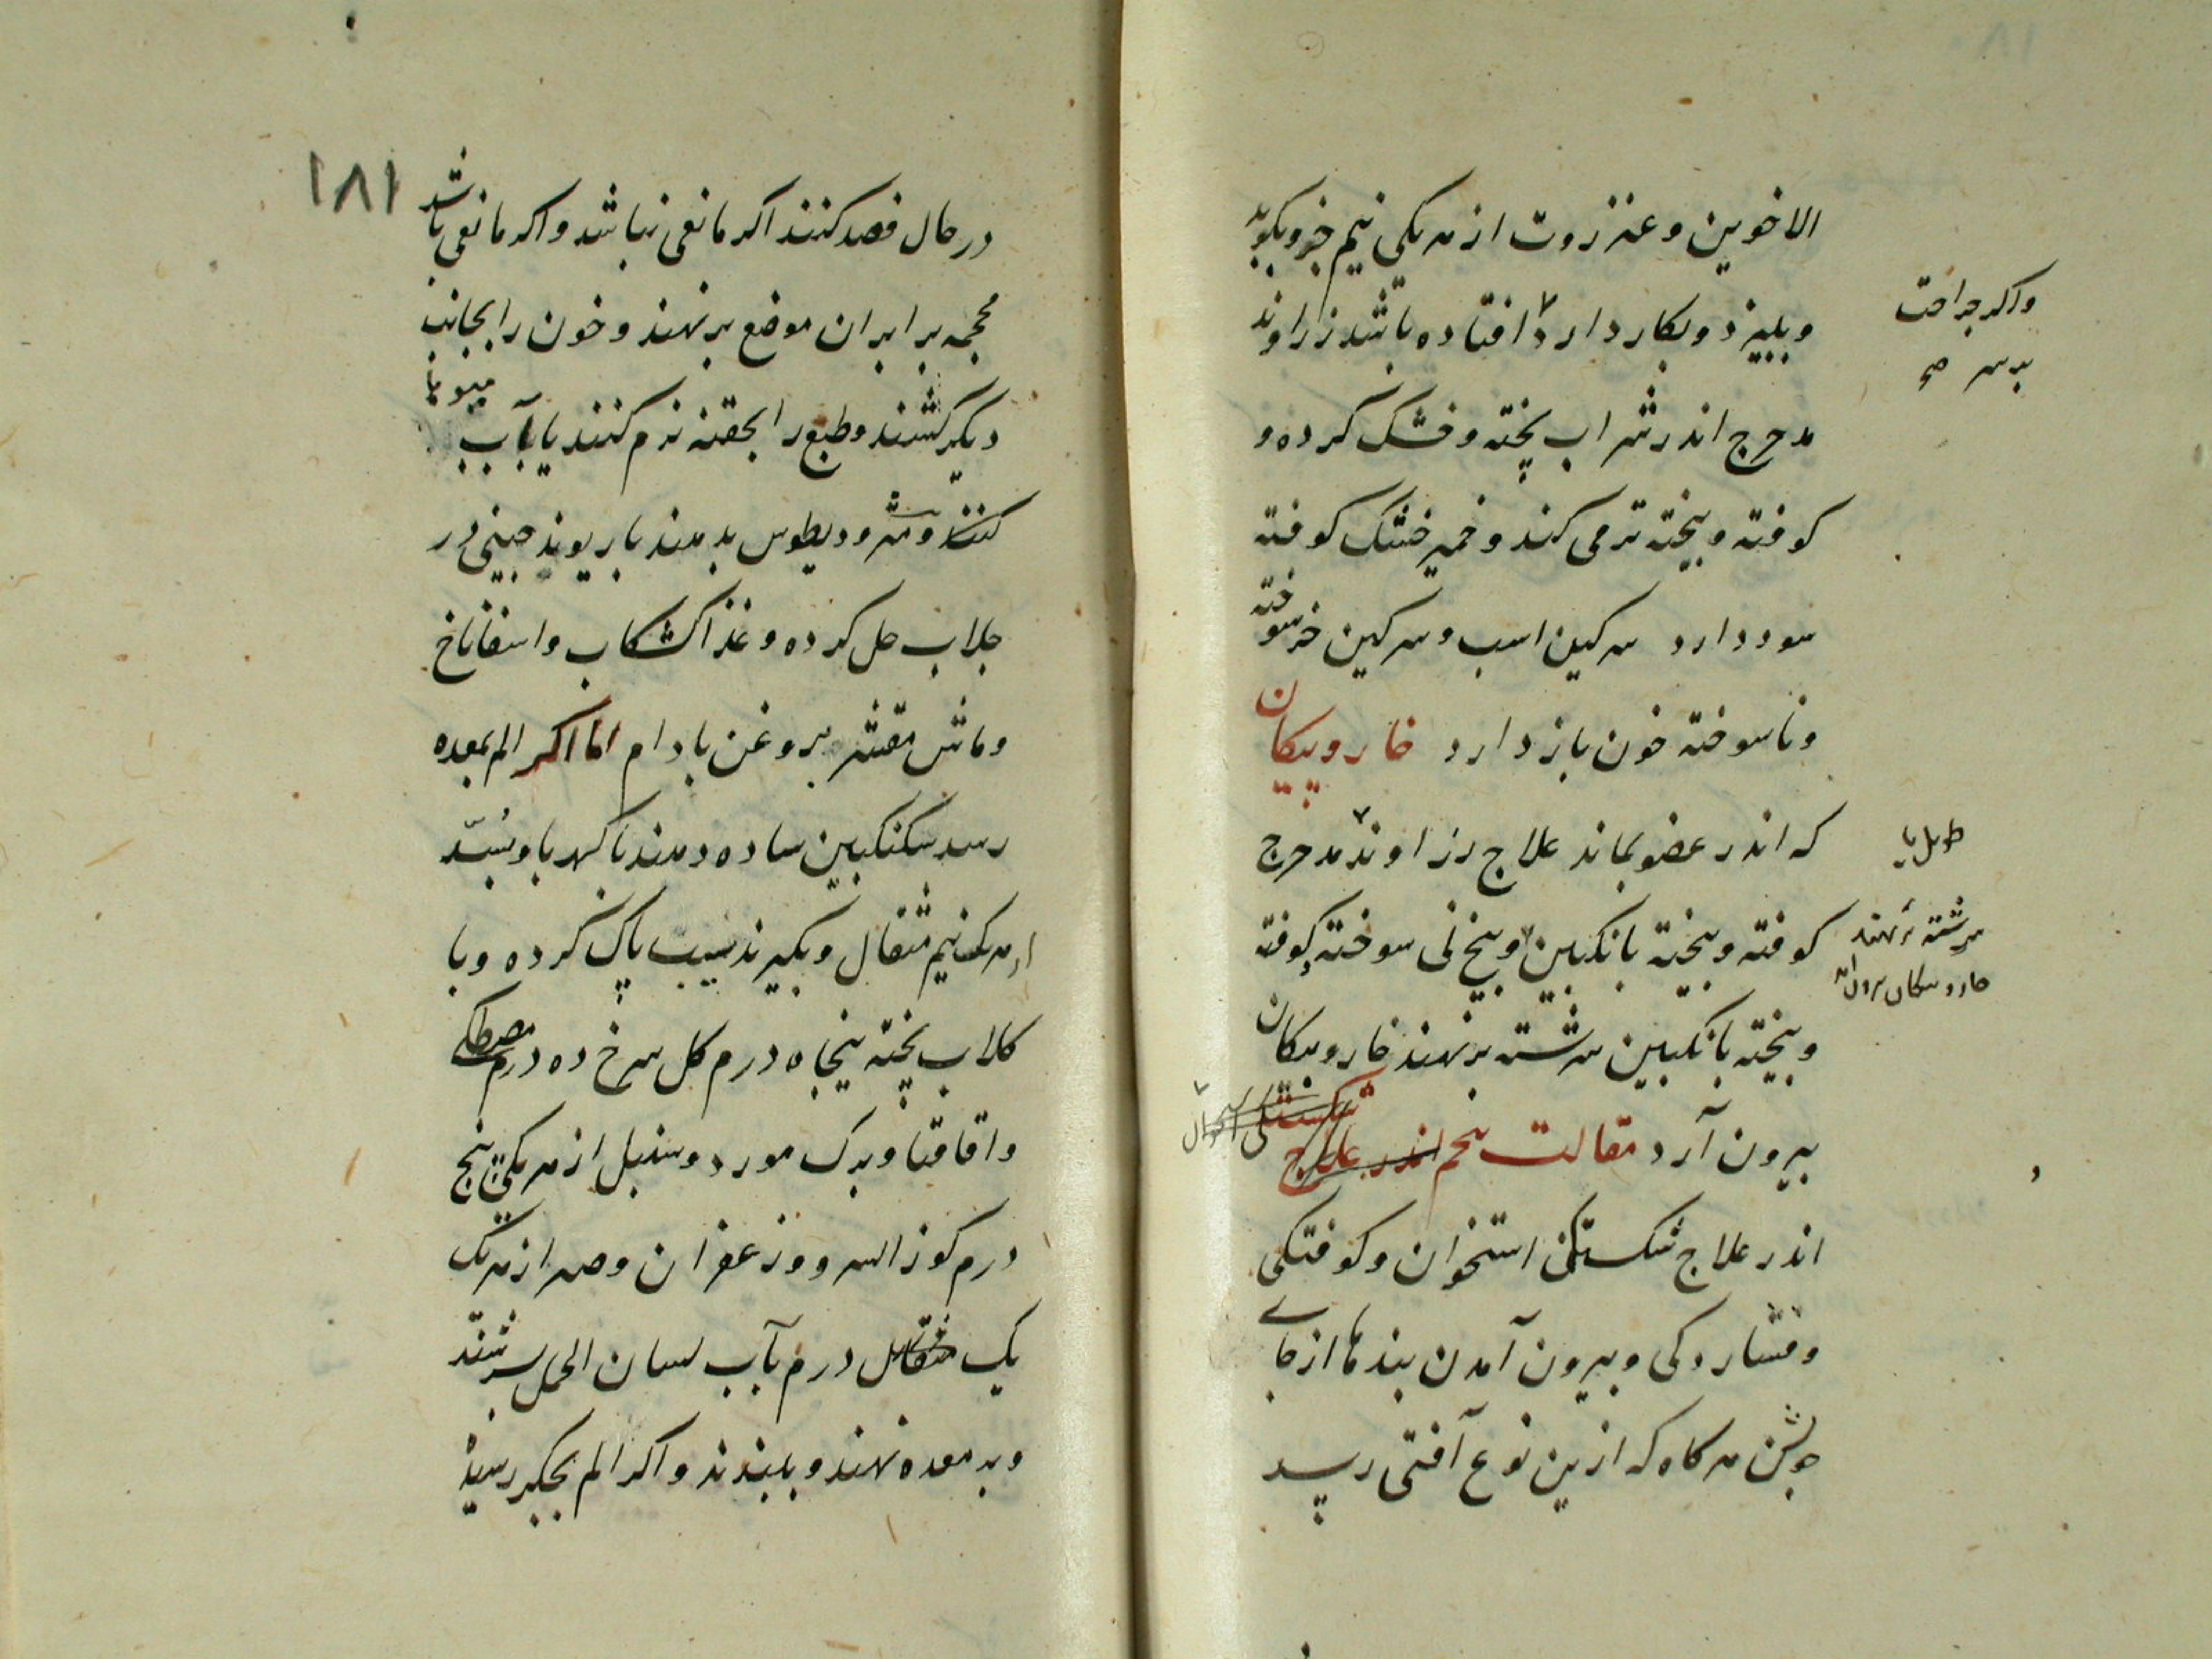 الاخوین و عنزروت از هر یکی نیم جزو بکوبد
و ببیزد و بکار دارد افتاده باشد زراوند
واکر جراحت
بر سر
مدحرج اندر شراب پخته و خشک کرده و
کوفته و بیخته تر می کند و خمیر خشک کوفته
سود دارد سرکین اسب و سرکین خر سوخته
و ناسوخته خون باز دارد خار و پیکان
که اندر عضو بماند علاج زراوند مدحرج
طویل یا
کوفته و بیخته بانکبین و بیخ نی سوخته کوفته
سرشته برنهند
خار و پیکان بیرون آرد
و بیخته بانکبین سرشته برنهند خار و پیکان
بیرون آرد مقالت پنجم اندر علاج شکستکی استخوان
اندر علاج شکستکی استخوان و کوفتکی
و فشاردکی و بیرون آمدن بندها از جای
خویش هر کاه که ازین نوع آفتی رسید
۱۸۱
در حال فصد کنند اکر مانعی نباشد و اکر مانعی باشد
محجمه برابر ان موضع برنهند و خون را بجانب
دیکر کشند و طبع را بحقنه نرم کنند یا بآب میوها
کنند و مثرودیطوس بدهند با ریوند چینی در
جلاب حل کرده و غذا کشکاب و اسفاناخ
و ماش مقشر بروغن بادام اما اکر الم بمعده
رسد سکنکبین ساده دهند با کهربا و بُسّد
از هر یک نیم مثقال و بکیرند سیب پاک کرده و با
کلاب پخته پنجاه درم کل سرخ ده درم مصطکی
و اقاقیا و برک مورد و سنبل از هر یکی پنج
درم کوز السرو و زعفران و صبر از هر یک
یک مثقال درم بآب لسان الحمل بسرشند
و بر معده نهند و ببندند و اکر الم بجکر رسید